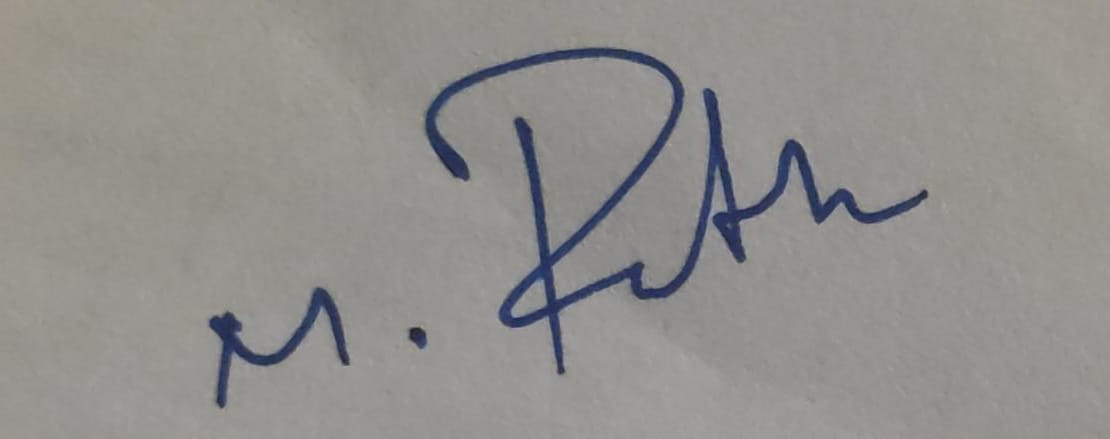 M. Rath